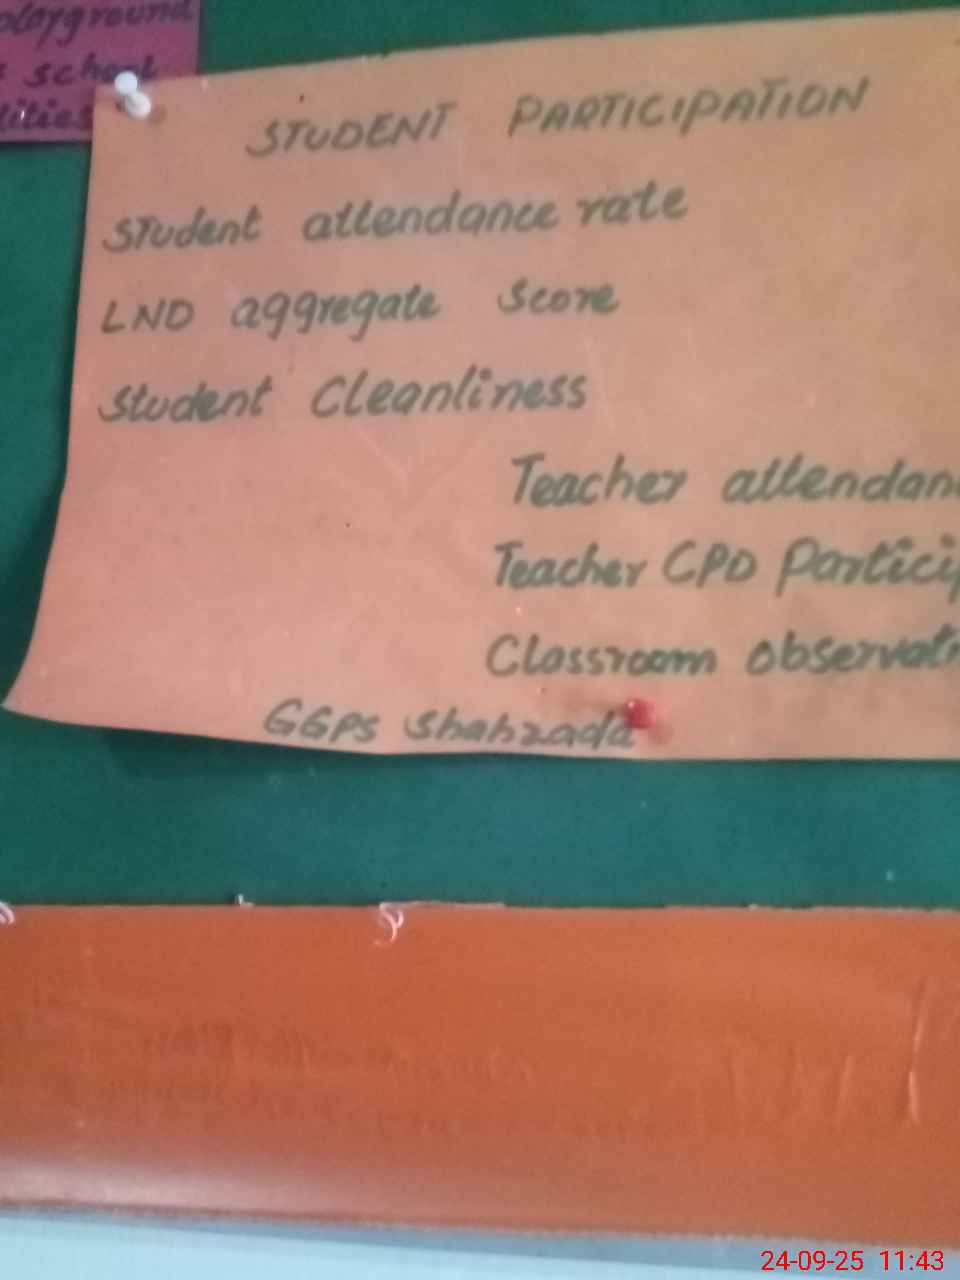 playground
school
STUDENT PARTICIPATION
Student attendance rate
LND aggregate score
Student Cleanliness
Teacher attendan
Teacher CPD Particip
Classroom observati
GGPS Shahzada
24-09-25 11:43